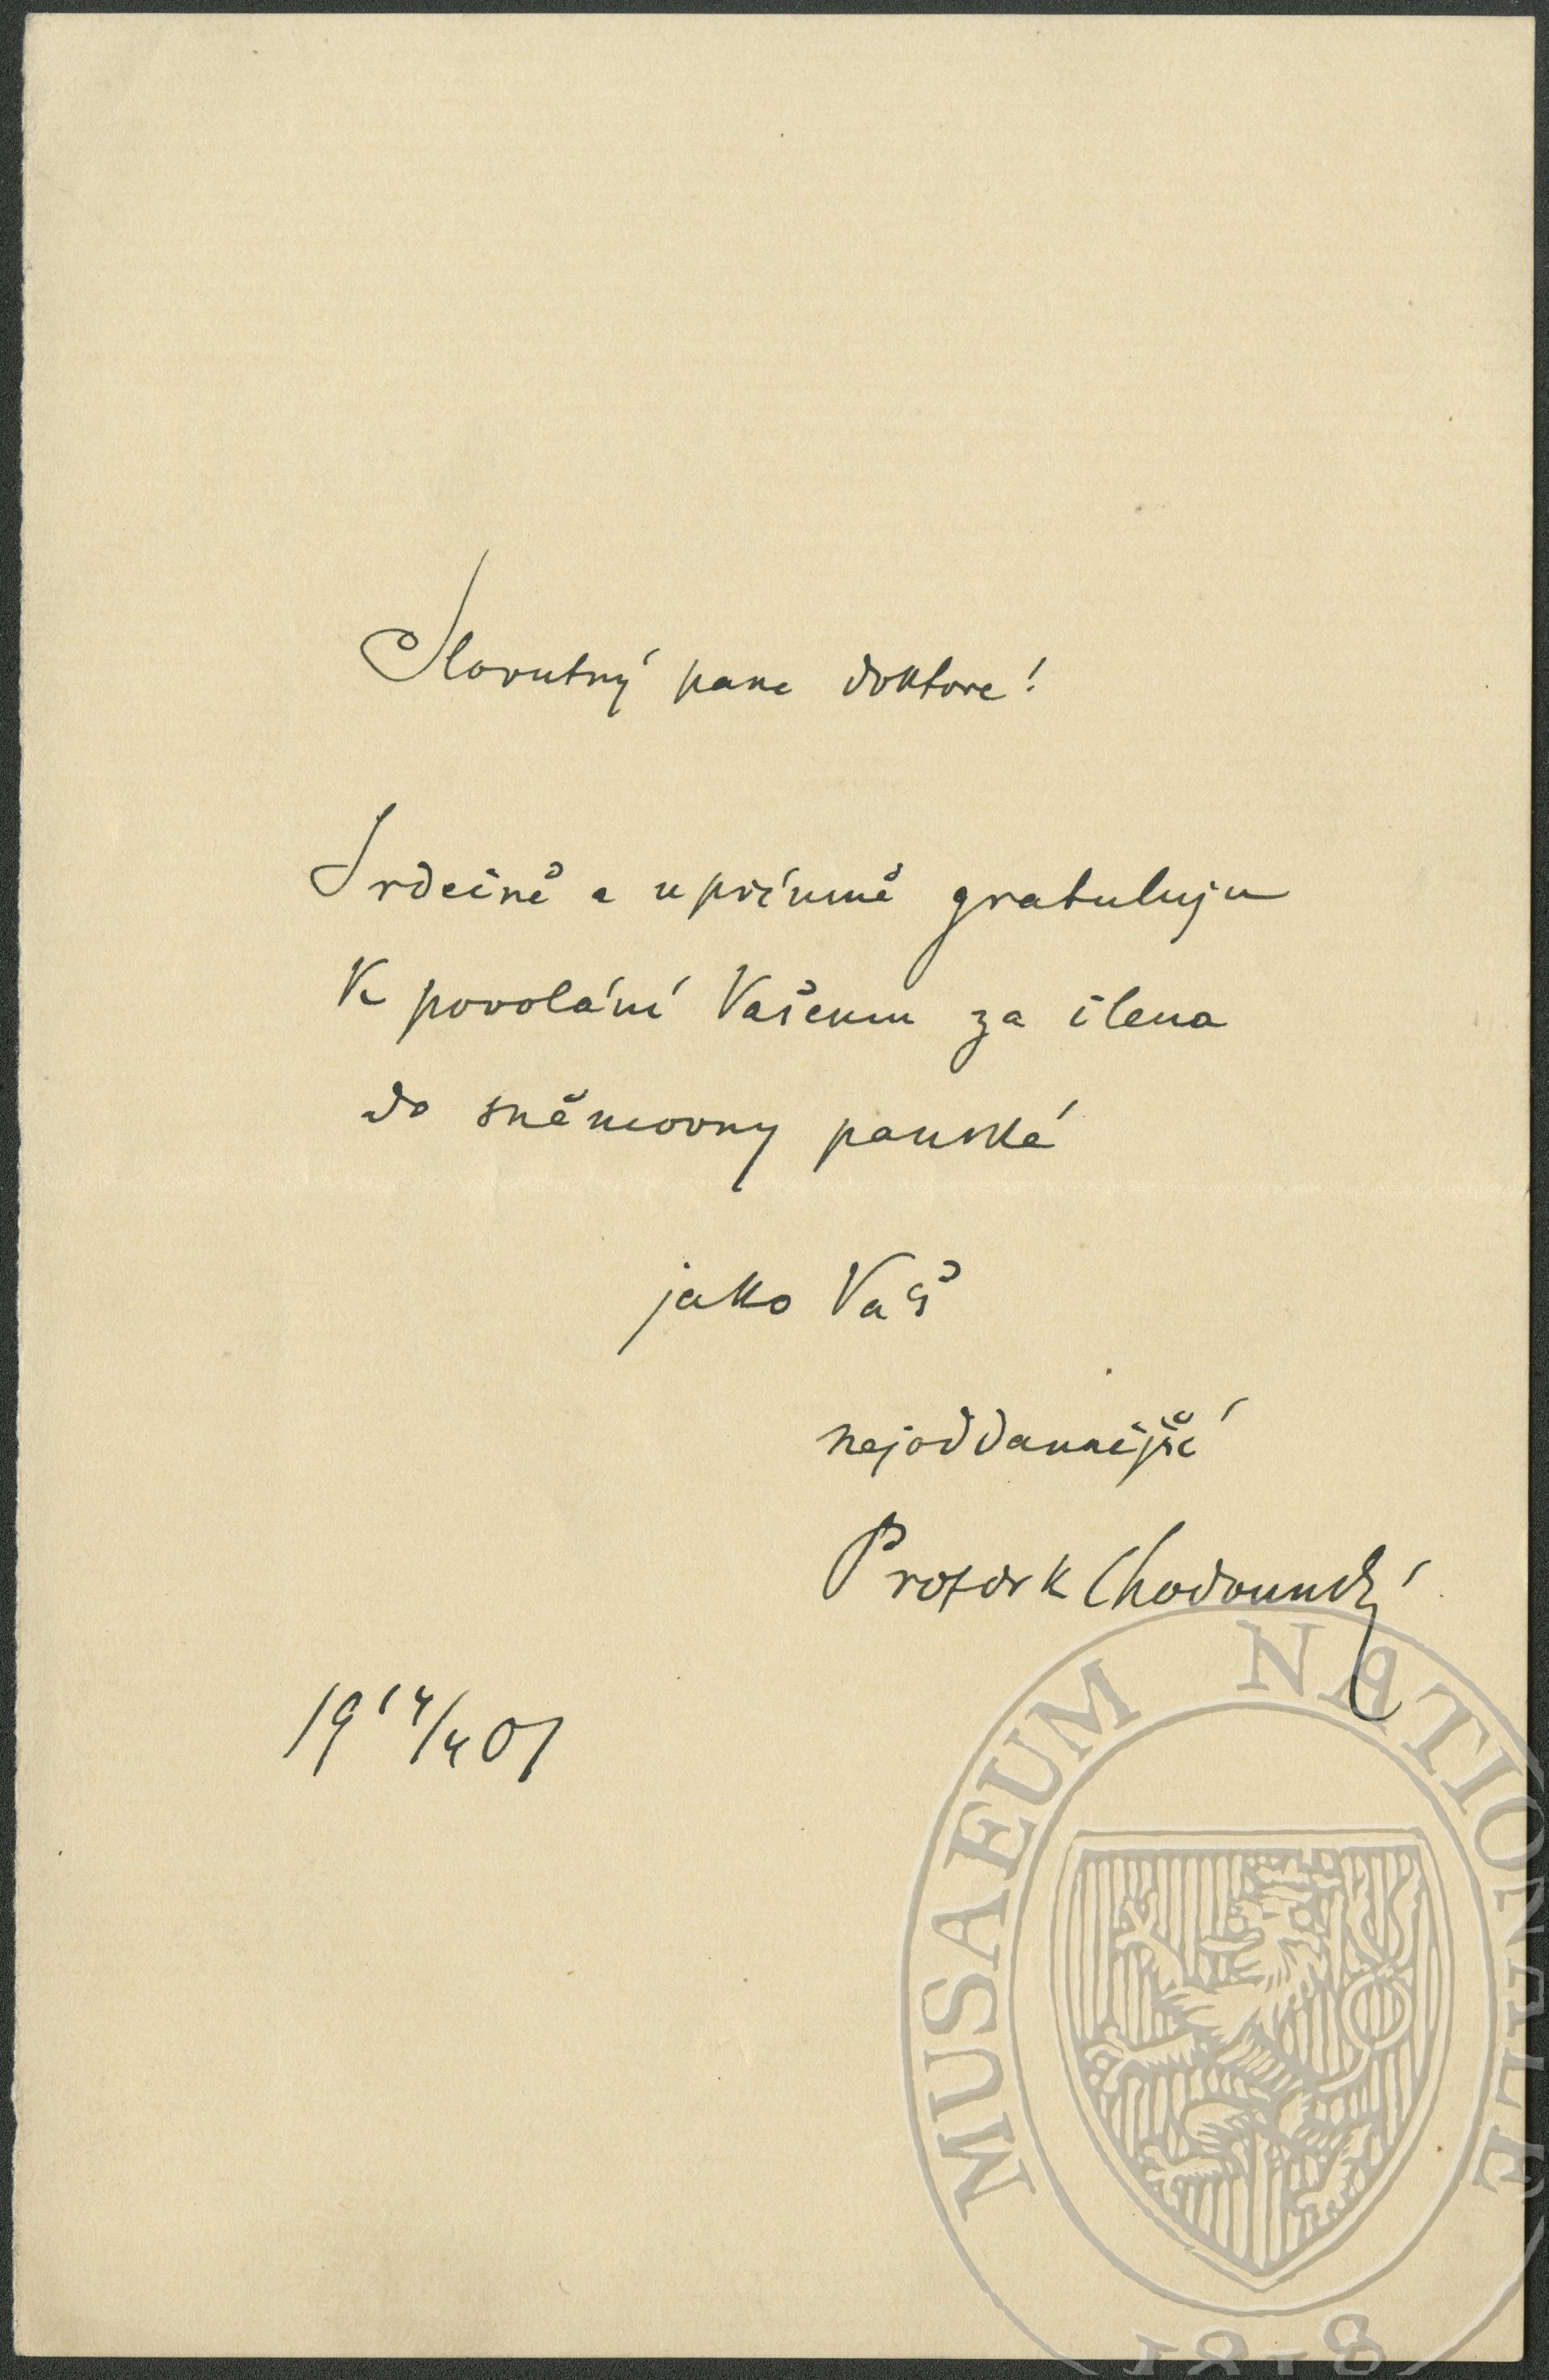 Slovutný pane doktore!
Srdečně a upřímně gratuluju
K povolání Vašemu za člena
do sněmovny panské
jako Váš
nejoddannější
Prof dr K Chodounský
19 14/4 01
MUSAEUM NATIONALE
1818